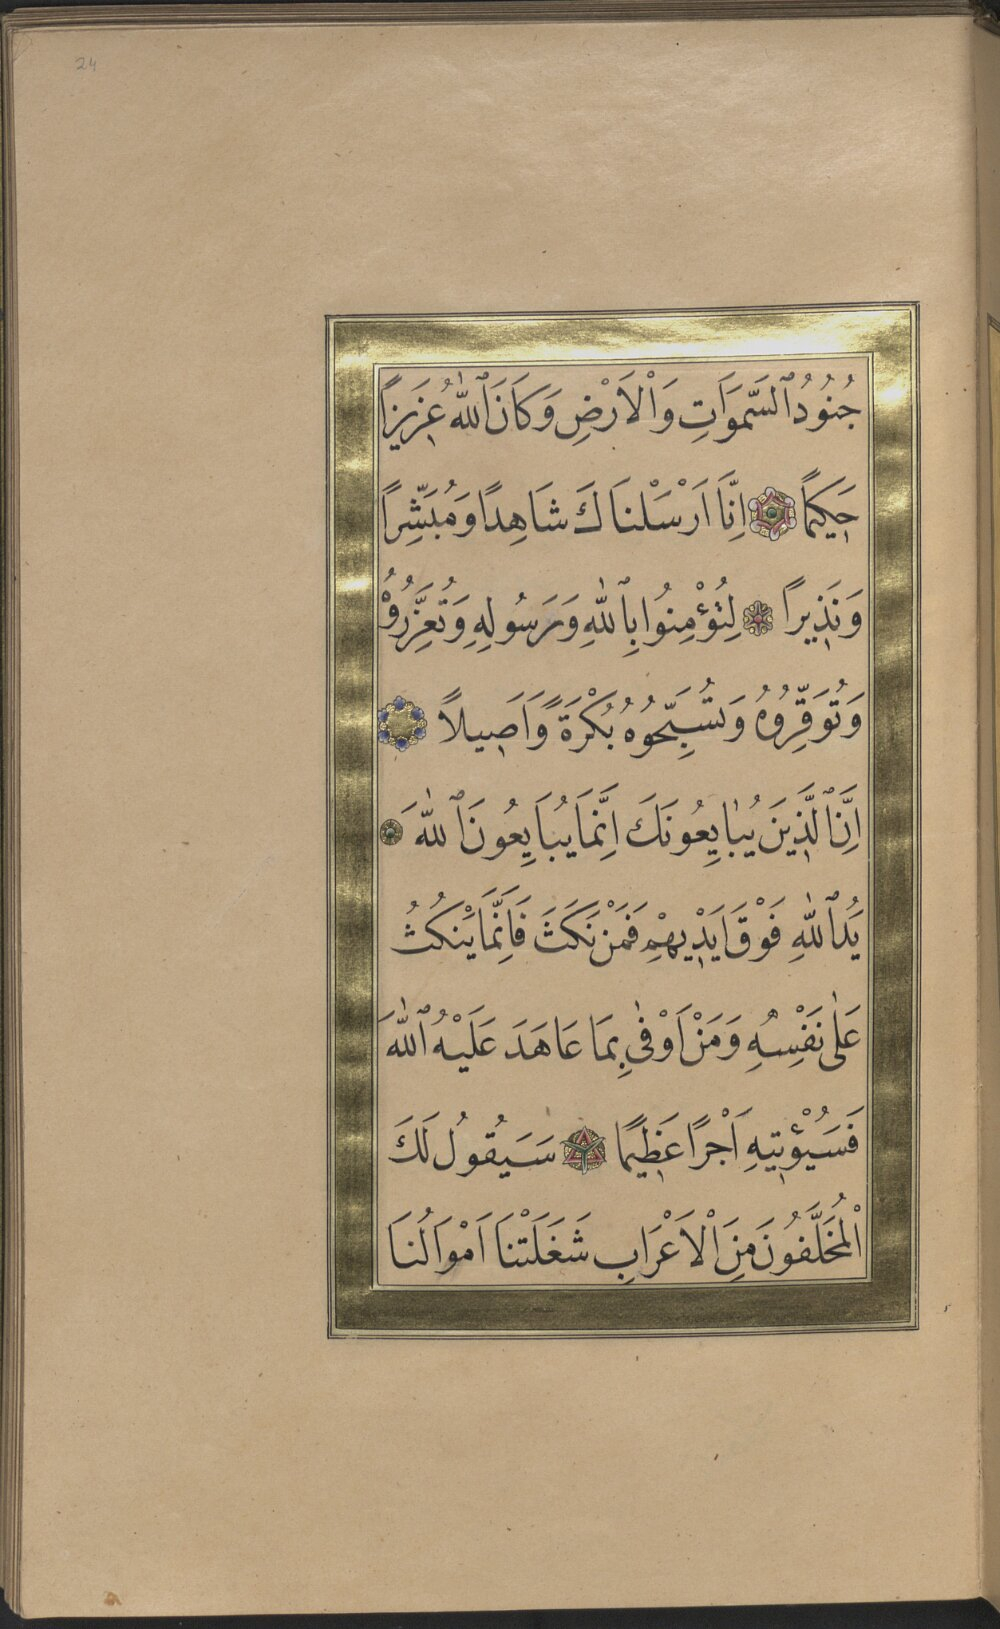 24
جُنُودُ ٱلسَّمٰوَاتِ وَالْاَرْضِ وَكَانَ ٱللّٰهُ عَزِيزًا
حَكِيمًا اِنَّا اَرْسَلْنَاكَ شَاهِدًا وَمُبَشِّرًا
وَنَذِيرًا لِتُؤْمِنُوا بِٱللّٰهِ وَرَسُولِهِ وَتُعَزِّرُوهُ
وَتُوَقِّرُوهُ وَتُسَبِّحُوهُ بُكْرَةً وَاَصِيلاً
اِنَّ ٱلَّذِينَ يُبَايِعُونَكَ اِنَّمَا يُبَايِعُونَ ٱللّٰهَ
يَدُ ٱللّٰهِ فَوْقَ اَيْدِيهِمْ فَمَنْ نَكَثَ فَاِنَّمَا يَنْكُثُ
عَلٰى نَفْسِهِ وَمَنْ اَوْفٰى بِمَا عَاهَدَ عَلَيْهُ ٱللّٰهَ
فَسَيُؤْتِيهِ اَجْرًا عَظِيمًا سَيَقُولُ لَكَ
الْمُخَلَّفُونَ مِنَ الْاَعْرَابِ شَغَلَتْنَا اَمْوَالُنَا